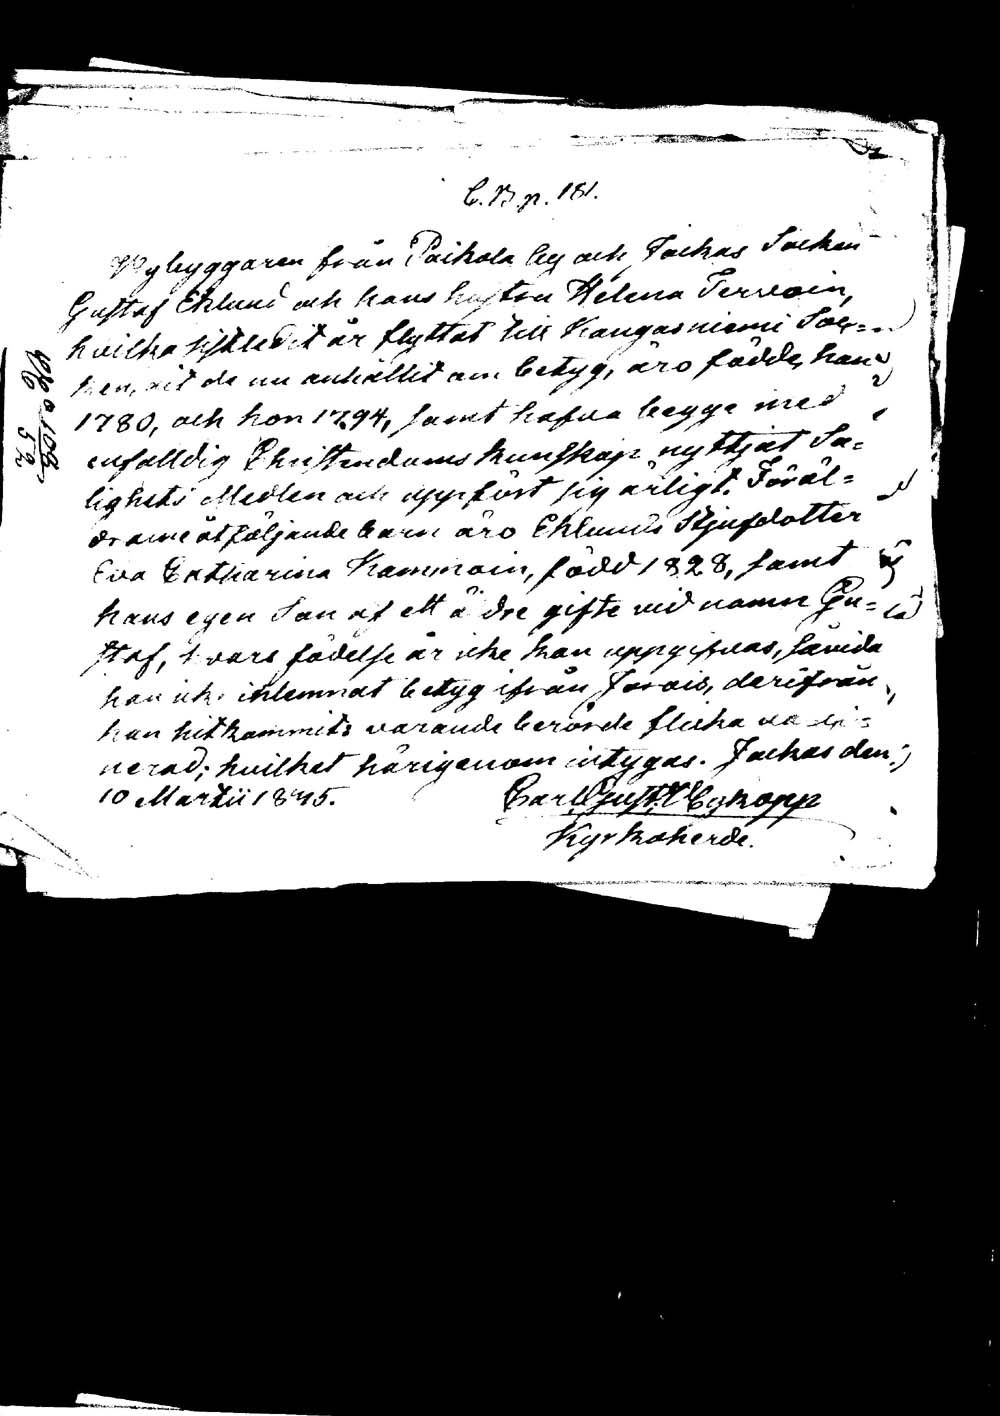 C.B.p. 181.
Nybyggaren från Paikola by och Jockas Socken
Gustaf Eklund och hans hustru Helena Terwoin,
hvilka sistledit år flyttat till Kangasniemi Soc=
ken, dit de nu anhållit om betyg, äro födde, han
1780, och hon 1794, samt hafva begge med
enfalldig Christendoms kunskap nyttjat Sa=
lighets Medlen och uppfört sig ärligt. Föräl=
drarne åtföljande barn äro Eklunds Stjufdotter
Eva Catharina Hammoin, född 1828, samt
hans egen Son af ett ä dre gifte vid namn Gu=
staf, hvars födelse år icke kan uppgifvas, såvida
han icke inlemnat betyg ifrån Jorois, derifrån
han hitkommit; varande berörde flicka va ci=
nerad; hvilket härigenom intygas. Jockas den
10 Martii 1845.
Carl Gust.
Kyrkoherde.